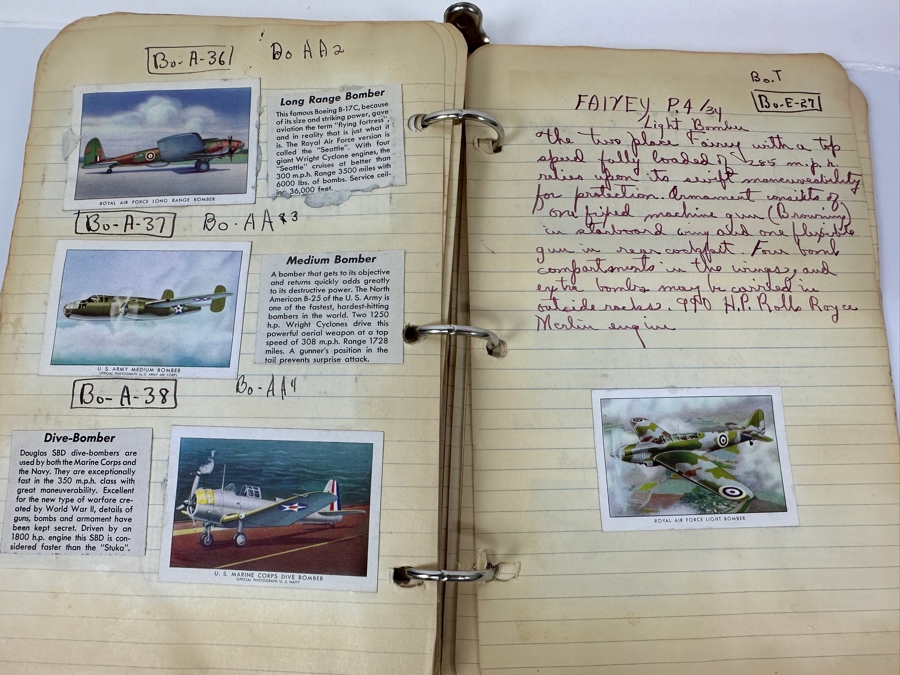 Bo-A-36
Bo AA2
Long Range Bomber
This famous Boeing B-17C, because
of its size and striking power, gave
aviation the term "flying fortress",
and in reality that is just what it
is. The Royal Air Force version is
called the "Seattle". With four
giant Wright Cyclone engines, the
"Seattle" cruises at better than
300 m.p.h. Range 3500 miles with
6000 lbs. of bombs. Service ceil-
ing 36,000 feet.
ROYAL AIR FORCE LONG RANGE BOMBER
Bo-A-37
Bo-AA 3
Medium Bomber
A bomber that gets to its objective
and returns quickly adds greatly
to its destructive power. The North
American B-25 of the U. S. Army is
one of the fastest, hardest-hitting
bombers in the world. Two 1250
h.p. Wright Cyclones drive this
powerful aerial weapon at a top
speed of 308 m.p.h. Range 1728
miles. A gunner's position in the
tail prevents surprise attack.
U. S. ARMY MEDIUM BOMBER
OFFICIAL PHOTOGRAPH U. S. ARMY AIR CORPS
Bo-A-38
Bo-AA4
Dive-Bomber
Douglas SBD dive-bombers are
used by both the Marine Corps and
the Navy. They are exceptionally
fast in the 350 m.p.h. class with
great maneuverability. Excellent
for the new type of warfare cre-
ated by World War II, details of
guns, bombs and armament have
been kept secret. Driven by an
1800 h.p. engine this SBD is con-
sidered faster than the "Stuka".
U. S. MARINE CORPS DIVE BOMBER
OFFICIAL PHOTOGRAPH U. S. NAVY
Bo.T
Bo-E-27
FAIREY P.4/34
Light Bomber
The two place Fairey with a top
speed fully loaded of 285 m.p.h.
relies upon its swift maneuverability
for protection. Armament consists of
one fixed machine gun (Browning)
in starboard wing and one flexible
gun in rear cockpit. Four bomb
compartments in the wings, and
extra bombs may be carried in
outside racks. 990 H.P. Rolls Royce
Merlin engine
ROYAL AIR FORCE LIGHT BOMBER